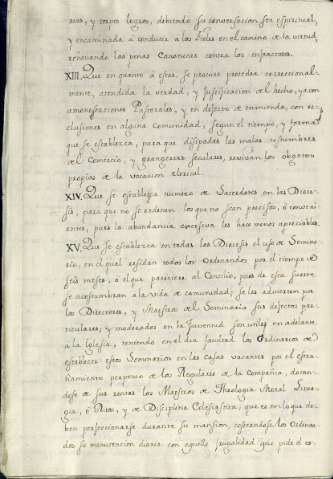 y encaminada à conducir a los Fieles en el camino de la virtud,
renovando las penas Canonicas contra los infractores.
XIII. Que en quanto à esta, se procure proceder correccional-
mente, atendida la verdad, y justificacion del hecho, ya con
amonestaciones Pastorales, y en defecto de enmienda, con re-
clusiones en alguna Comunidad, segun el tiempo, y
que se establezca, para que disipadas las malas costumbres
del Comercio, y grangerias seculares, revivan los objetos
propios de la vocacion clerical.
XIV. Que se establezca numero de Sacerdotes en las Dioce-
sis, para que no se ordenen los que no sean precisos, ò
pues la abundancia excesiva les hace menos apreciables.
XV. Que se establezca en todas las Diocesis el uso de Semina-
rio, en el qual residan todos los Ordenandos por el tiempo de
seis meses, ò el que pareciere al Concilio, para de esta suerte
se acostumbren à la vida de comunidad; se les adviertan por
los Directores, y Maestros del Seminario sus defectos par-
ticulares; y moderados en la Juventud, son utiles en adelante
a la Iglesia, teniendo en el dia facultad los Ordinarios de
establecer estos Seminarios en las casas vacantes por el estra-
ñamiento perpetuo de los Regulares de la Compañia, dotan-
dose de sus rentas los Maestros de Theologia Moral,
gia, ò Ritos, y de Disciplina Eclesiastica, que es en la que de-
ben perfeccionarse durante su mansion, costeandose los Ordenan-
dos su manutencion diaria con aquella frugalidad que pide el es-